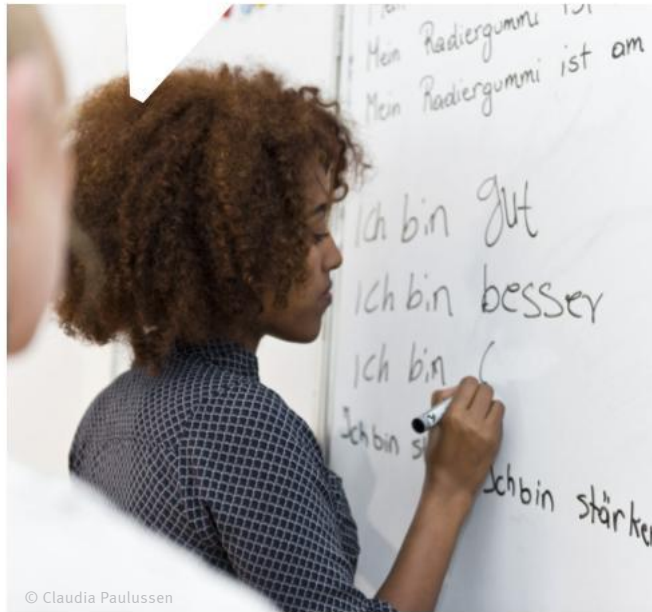 Mein Radiergummi ist
Mein Radiergummi ist am
Ich bin gut
Ich bin besser
Ich bin
Ich bin
Ich bin stärker
© Claudia Paulussen